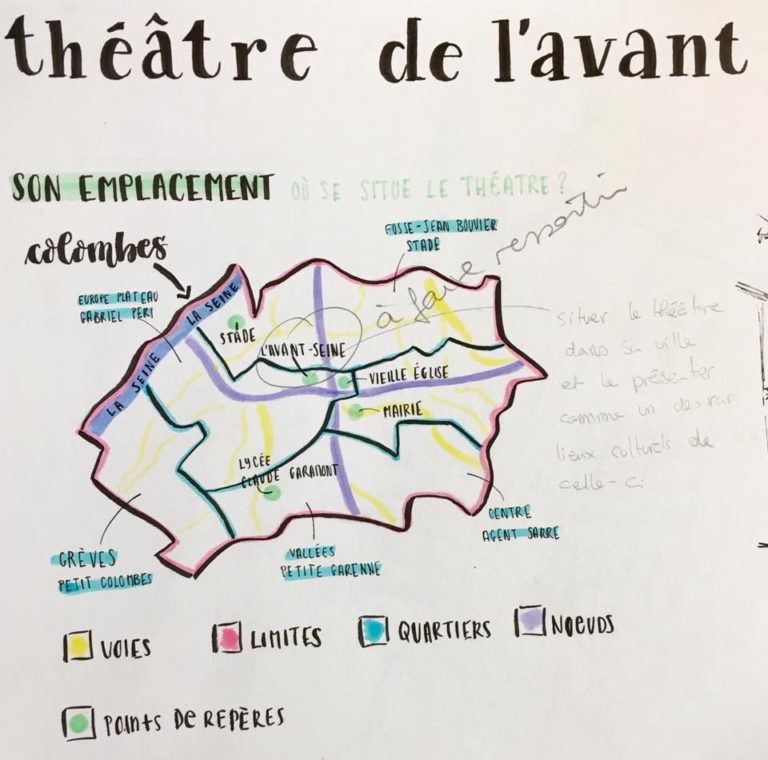 théâtre de l'avant
SON EMPLACEMENT OÙ SE SITUE LE THÉATRE?
colombes
FOSSE-JEAN BOUVIER
STADE
à faire ressortir
EUROPE PLATEAU
GABRIEL PÉRI
LA SEINE
LA SEINE
STADE
L'AVANT-SEINE
VIEILLE ÉGLISE
MAIRIE
LYCÉE
CLAUDE GARAMONT
situer le théâtre
dans sa ville
et le présenter
comme un des
lieux culturels de
celle-ci
CENTRE
AGENT SARRE
GRÈVES
PETIT COLOMBES
VALLÉES
PETITE GARENNE
VOIES
LIMITES
QUARTIERS
NOEUDS
POINTS DE REPÈRES